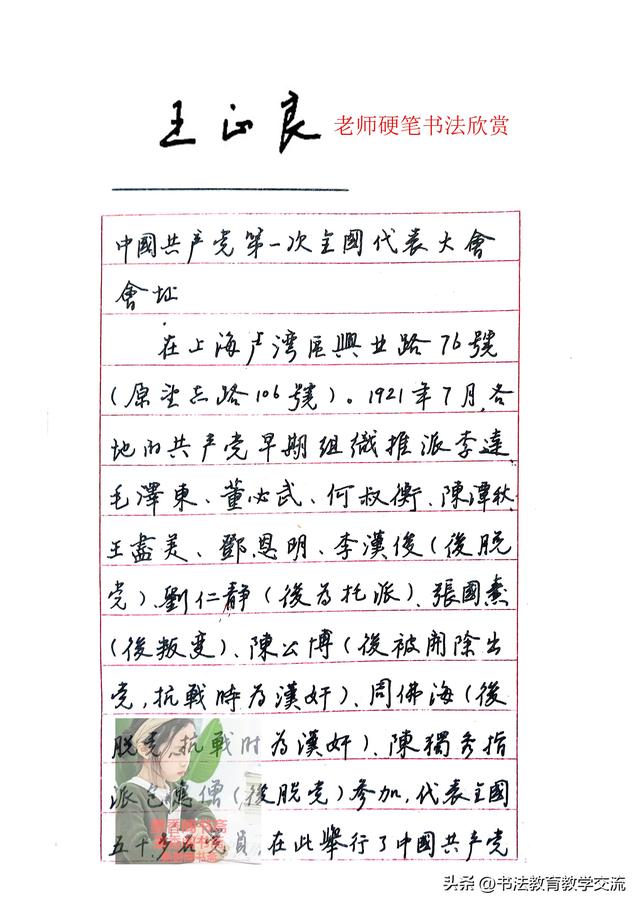 王正良 老师硬笔书法欣赏
中國共产党第一次全國代表大會
會址
在上海卢湾区興业路76號
(原望志路106號)。1921年7月,各
地的共产党早期组織推派李達、
毛澤東、董必武、何叔衡、陳潭秋、
王盡美、鄧恩明、李漢俊(後脱
党)、劉仁靜(後為托派)、張國燾
(後叛变)、陳公博(後被開除出
党,抗戰時為漢奸)、周佛海(後
脱党,抗戰时為漢奸)、陳獨秀指
派包惠僧(後脱党)参加,代表全國
五十多名党員,在此舉行了中國共产党
头条 @书法教育教学交流